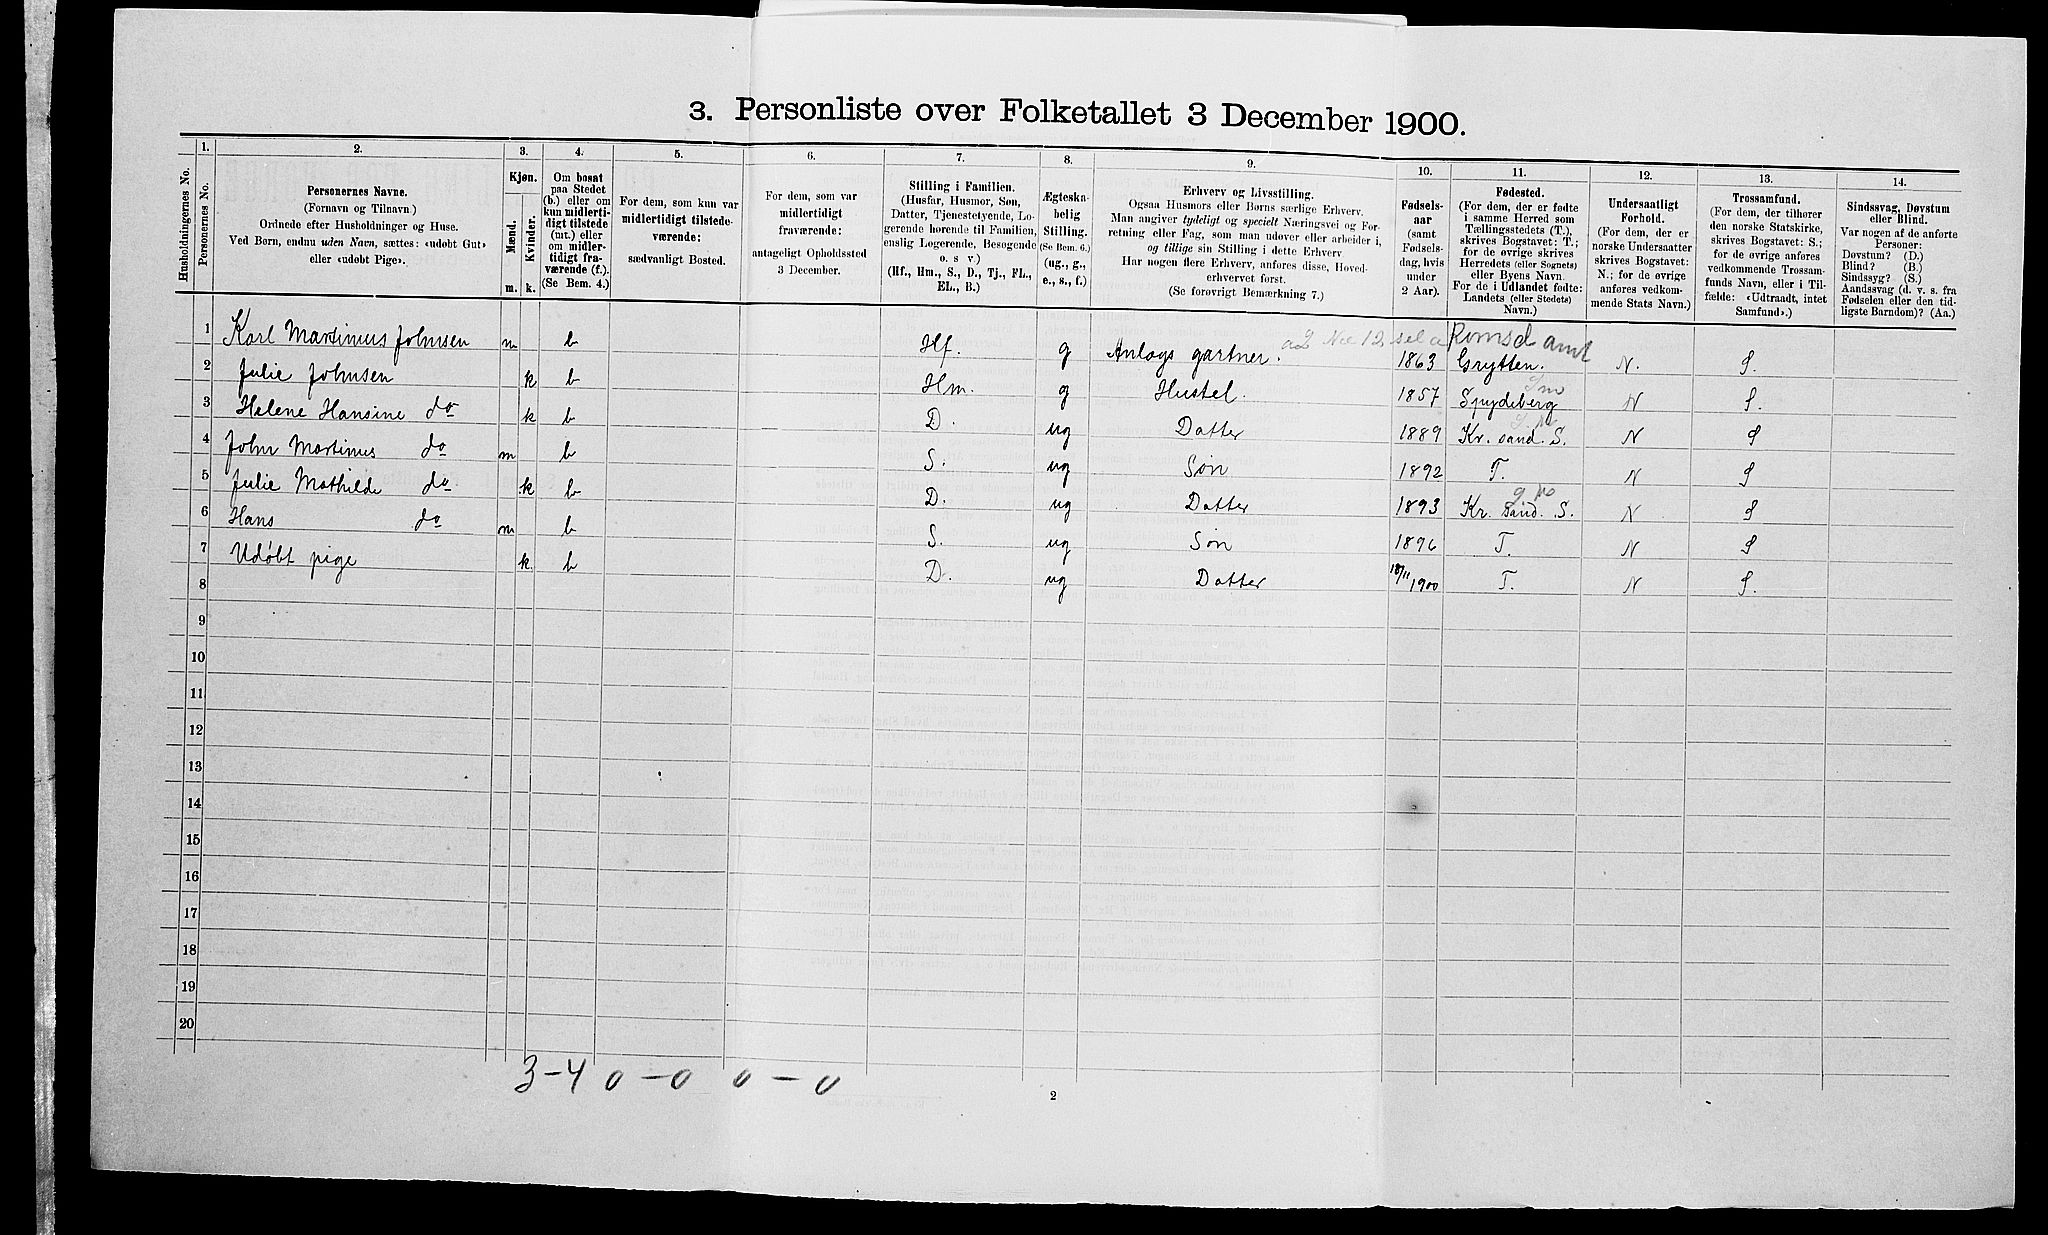 3. Personliste over Folketallet 3 December 1900.
1. 2. 3. 4. 5. 6. 7. 8. 9. 10. 11. 12. 13. 14.
Husholdningernes No.
Personernes No.
Personernes Navne.
(Fornavn og Tilnavn.)
Ordnede efter Husholdninger og Huse.
Ved Børn, endnu uden Navn, sættes: «udøbt Gut»
eller «udøbt Pige».
Kjøn.
Mænd.
Kvinder.
m. k.
Om bosat
paa Stedet
(b.) eller om
kun midlerti-
digt tilstede
(mt.) eller
om midler-
tidigt fra-
værende (f.).
(Se Bem. 4.)
For dem, som kun var
midlertidigt tilstede-
værende:
sædvanligt Bosted.
For dem, som var
midlertidigt
fraværende:
antageligt Opholdssted
3 December.
Stilling i Familien.
(Husfar, Husmor, Søn,
Datter, Tjenestetyende, Lo-
gerende hørende til Familien,
enslig Logerende, Besøgende
o. s. v.)
(Hf., Hm., S., D., Tj., FL.,
EL., B.)
Ægteska-
belig
Stilling.
(Se Bem. 6.)
(ug., g.,
e., s., f.)
Erhverv og Livsstilling.
Ogsaa Husmors eller Børns særlige Erhverv.
Man angiver tydeligt og specielt Næringsvei og For-
retning eller Fag, som man udøver eller arbeider i,
og tillige sin Stilling i dette Erhverv.
Har nogen flere Erhverv, anføres disse, Hoved-
erhvervet først.
(Se forøvrigt Bemærkning 7.)
Fødsels-
aar
(samt
Fødsels-
dag, hvis
under
2 Aar).
Fødested.
(For dem, der er fødte
i samme Herred som
Tællingsstedets (T.),
skrives Bogstavet: T.;
for de øvrige skrives
Herredets (eller Sognets)
eller Byens Navn.
For de i Udlandet fødte:
Landets (eller Stedets)
Navn.)
Undersaatligt
Forhold.
(For dem, der er
norske Undersaatter
skrives Bogstavet:
N.; for de øvrige
anføres vedkom-
mende Stats Navn.)
Trossamfund.
(For dem, der tilhører
den norske Statskirke,
skrives Bogstavet: S.;
for de øvrige anføres
vedkommende Trossam-
funds Navn, eller i Til-
fælde: «Udtraadt, intet
Samfund».)
Sindssvag, Døvstum
eller Blind.
Var nogen af de anførte
Personer:
Døvstum? (D.)
Blind? (B.)
Sindssyg? (S.)
Aandssvag (d. v. s. fra
Fødselen eller den tid-
ligste Barndom)? (Aa.)
Romsd. amt
1 Karl Martinius Johnsen m b Hf. g Anlags gartner. 1863 Grytten. N. S.
2 Julie Johnsen k b Hm. g Hustel. 1857 Spydeberg N S.
3 Helene Hansine do k b D. ug Datter 1889 Kr. sand. S. N S
4 John Martinus do m b S. ug Søn 1892 T. N S
5 Julie Mathilde do k b D. ug Datter 1893 Kr. sand. S. N S
6 Hans do m b S. ug Søn 1896 T. N S
7 Udøbt pige k. b D. ug Datter 18/11 1900 T. N S.
8
9
10
11
12
13
14
15
16
17
18
19
20
3-4 0-0 0-0
2